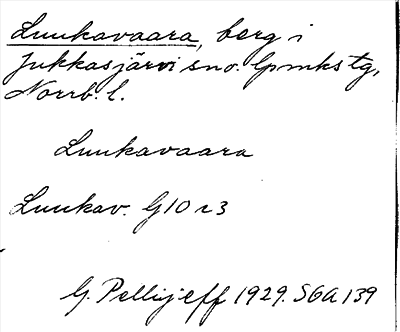 Luukavaara, berg i
Jukkasjärvi sno. lpmkstg,
Norrb. l.
Luukavaara
Luukav. G10 r3
G. Pellijeff 1929. SGA 139